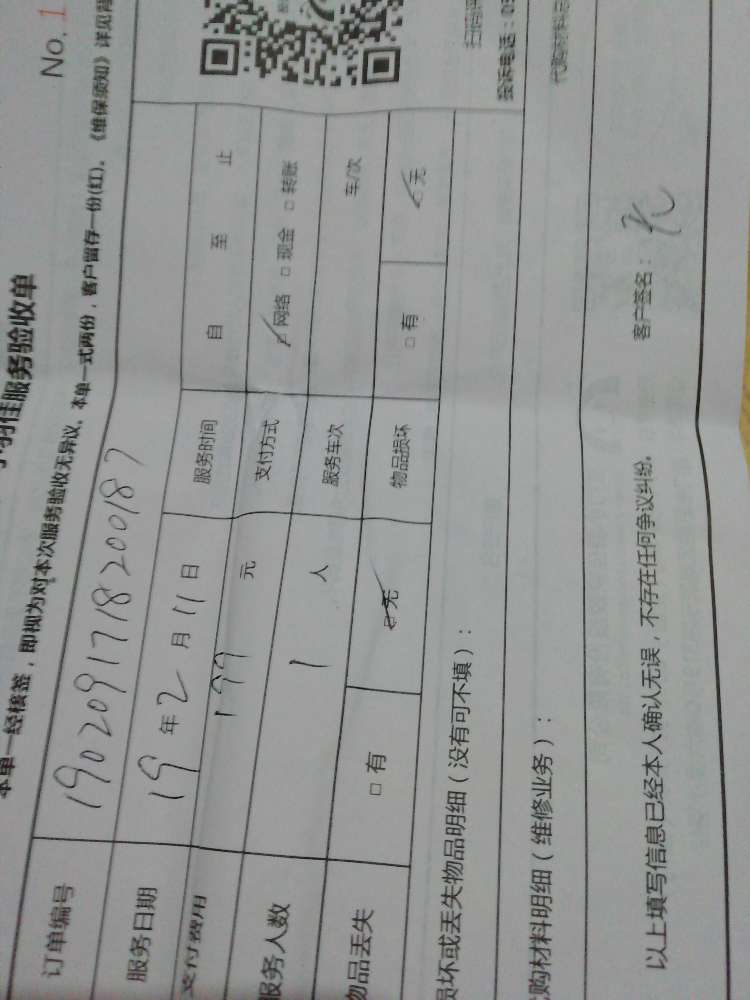 No.1
佳服务验收单
本单一经核签，即视为对本次服务验收无异议。本单一式两份，客户留存一份(红)。《维保须知》详见背
订单编号 1902091718200187
服务日期 19年2月11日 服务时间 自 至 止
支付费用 199元 支付方式 网络 □现金 □转账
服务人数 1人 服务车次 车/次
物品丢失 □有 无 物品损坏 □有 无
损坏或丢失物品明细（没有可不填）：
扫描
投诉电话：05
购材料明细（维修业务）：
以上填写信息已经本人确认无误，不存在任何争议纠纷。 客户签名：